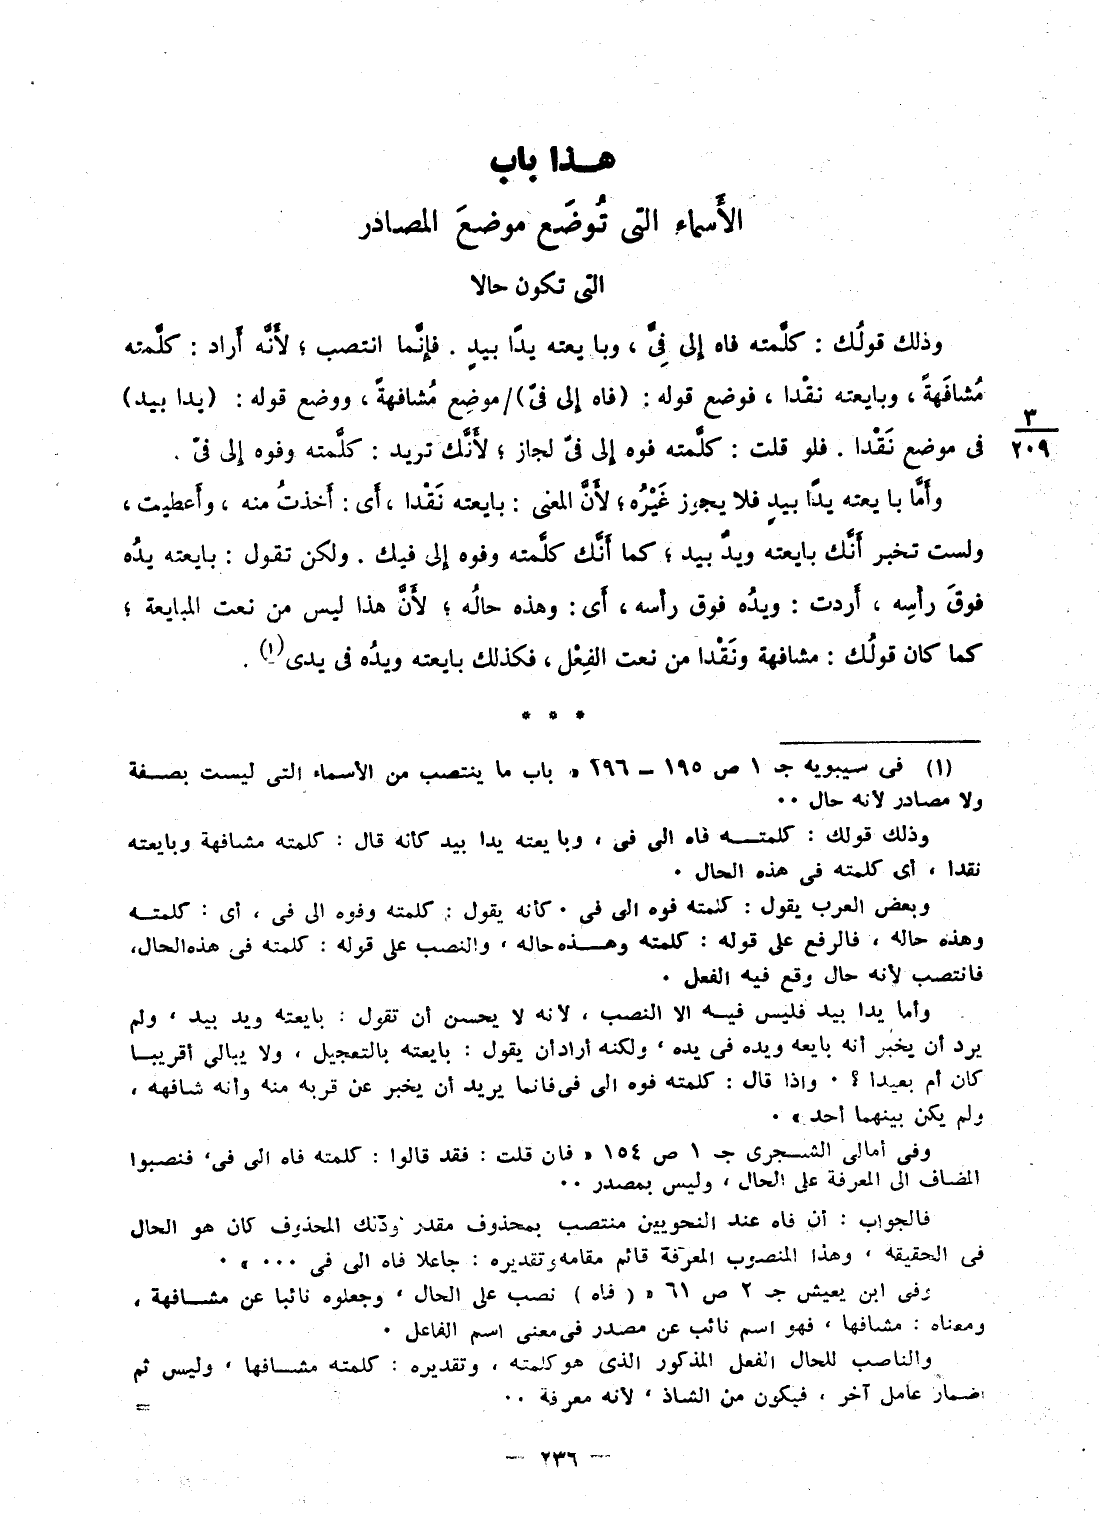 هـذا باب
الأَسماء التى تُوضَع موضعَ المصادر
التى تكون حالا
وذلك قولُك : كلَّمته فاه إلى فِىَّ ، وبايعته يدًا بيدٍ . فإنَّما انتصب ؛ لأَنَّه أَراد : كلَّمته
مُشافَهةً ، وبايعته نقْدا ، فوضع قوله : (فاه إلى فىّ)/موضِع مُشافهةً ، ووضع قوله : (يدا بيد)
فى موضع نَقْدا . فلو قلت : كلَّمته فوه إلى فىّ لجاز ؛ لأَنَّك تريد : كلَّمته وفوه إلى فىّ .
٣
٢٠٩
وأَمَّا بايعته يدًا بيدٍ فلا يجوز غَيْرُه ؛ لأَنَّ المعنى : بايعته نَقْدا ، أَى : أَخذتُ منه ، وأَعطيت ،
ولست تخبر أَنَّك بايعته ويدٌ بيد ؛ كما أَنَّك كلَّمته وفوه إلى فيك . ولكن تقول : بايعته يدُه
فوقَ رأْسِه ، أَردت : ويدُه فوق رأْسه ، أَى : وهذه حالُه ؛ لأَنَّ هذا ليس من نعت المبايعة ؛
كما كان قولُك : مشافهة ونَقْدا من نعت الفِعْل ، فكذلك بايعته ويدُه فى يدى(١) .
* * *
(١) فى سيبويه جـ ١ ص ١٩٥ – ٢٩٦ « باب ما ينتصب من الأسماء التى ليست بصـفة
ولا مصادر لأنه حال ٠٠
وذلك قولك : كلمتـــه فاه الى فى ، وبايعته يدا بيد كأنه قال : كلمته مشافهة وبايعته
نقدا ، أى كلمته فى هذه الحال ٠
وبعض العرب يقول : كلمته فوه الى فى ٠ كأنه يقول : كلمته وفوه الى فى ، أى : كلمتـه
وهذه حاله ، فالرفع على قوله : كلمته وهـــذه حاله ، والنصب على قوله : كلمته فى هذه الحال،
فانتصب لأنه حال وقع فيه الفعل ٠
وأما يدا بيد فليس فيـه الا النصب ، لأنه لا يحسن أن تقول : بايعته ويد بيد ، ولم
يرد أن يخبر أنه بايعه ويده فى يده ، ولكنه أراد أن يقول : بايعته بالتعجيل ، ولا يبالى أقريبـا
كان أم بعيدا ؟ ٠ واذا قال : كلمته فوه الى فى فانما يريد أن يخبر عن قربه منه وأنه شافهه ،
ولم يكن بينهما أحد » ٠
وفى أمالى الشـجرى جـ ١ ص ١٥٤ « فان قلت : فقد قالوا : كلمته فاه الى فى، فنصبوا
المضاف الى المعرفة على الحال ، وليس بمصدر ٠٠
فالجواب : أن فاه عند النحويين منتصب بمحذوف مقدر وذلك المحذوف كان هو الحال
فى الحقيقه ، وهذا المنصوب المعرفة قائم مقامه وتقديره : جاعلا فاه الى فى ٠٠٠ » ٠
وفى ابن يعيش جـ ٢ ص ٦١ « ( فاه ) نصب على الحال ، وجعلوه نائبا عن مشـافهة ،
ومعناه : مشافها ، فهو اسم نائب عن مصدر فى معنى اسم الفاعل ٠
والناصب للحال الفعل المذكور الذى هو كلمته ، وتقديره : كلمته مشـافها ، وليس ثم
اضمار عامل آخر ، فيكون من الشاذ ، لأنه معرفة ٠٠
=
— ٢٣٦ —